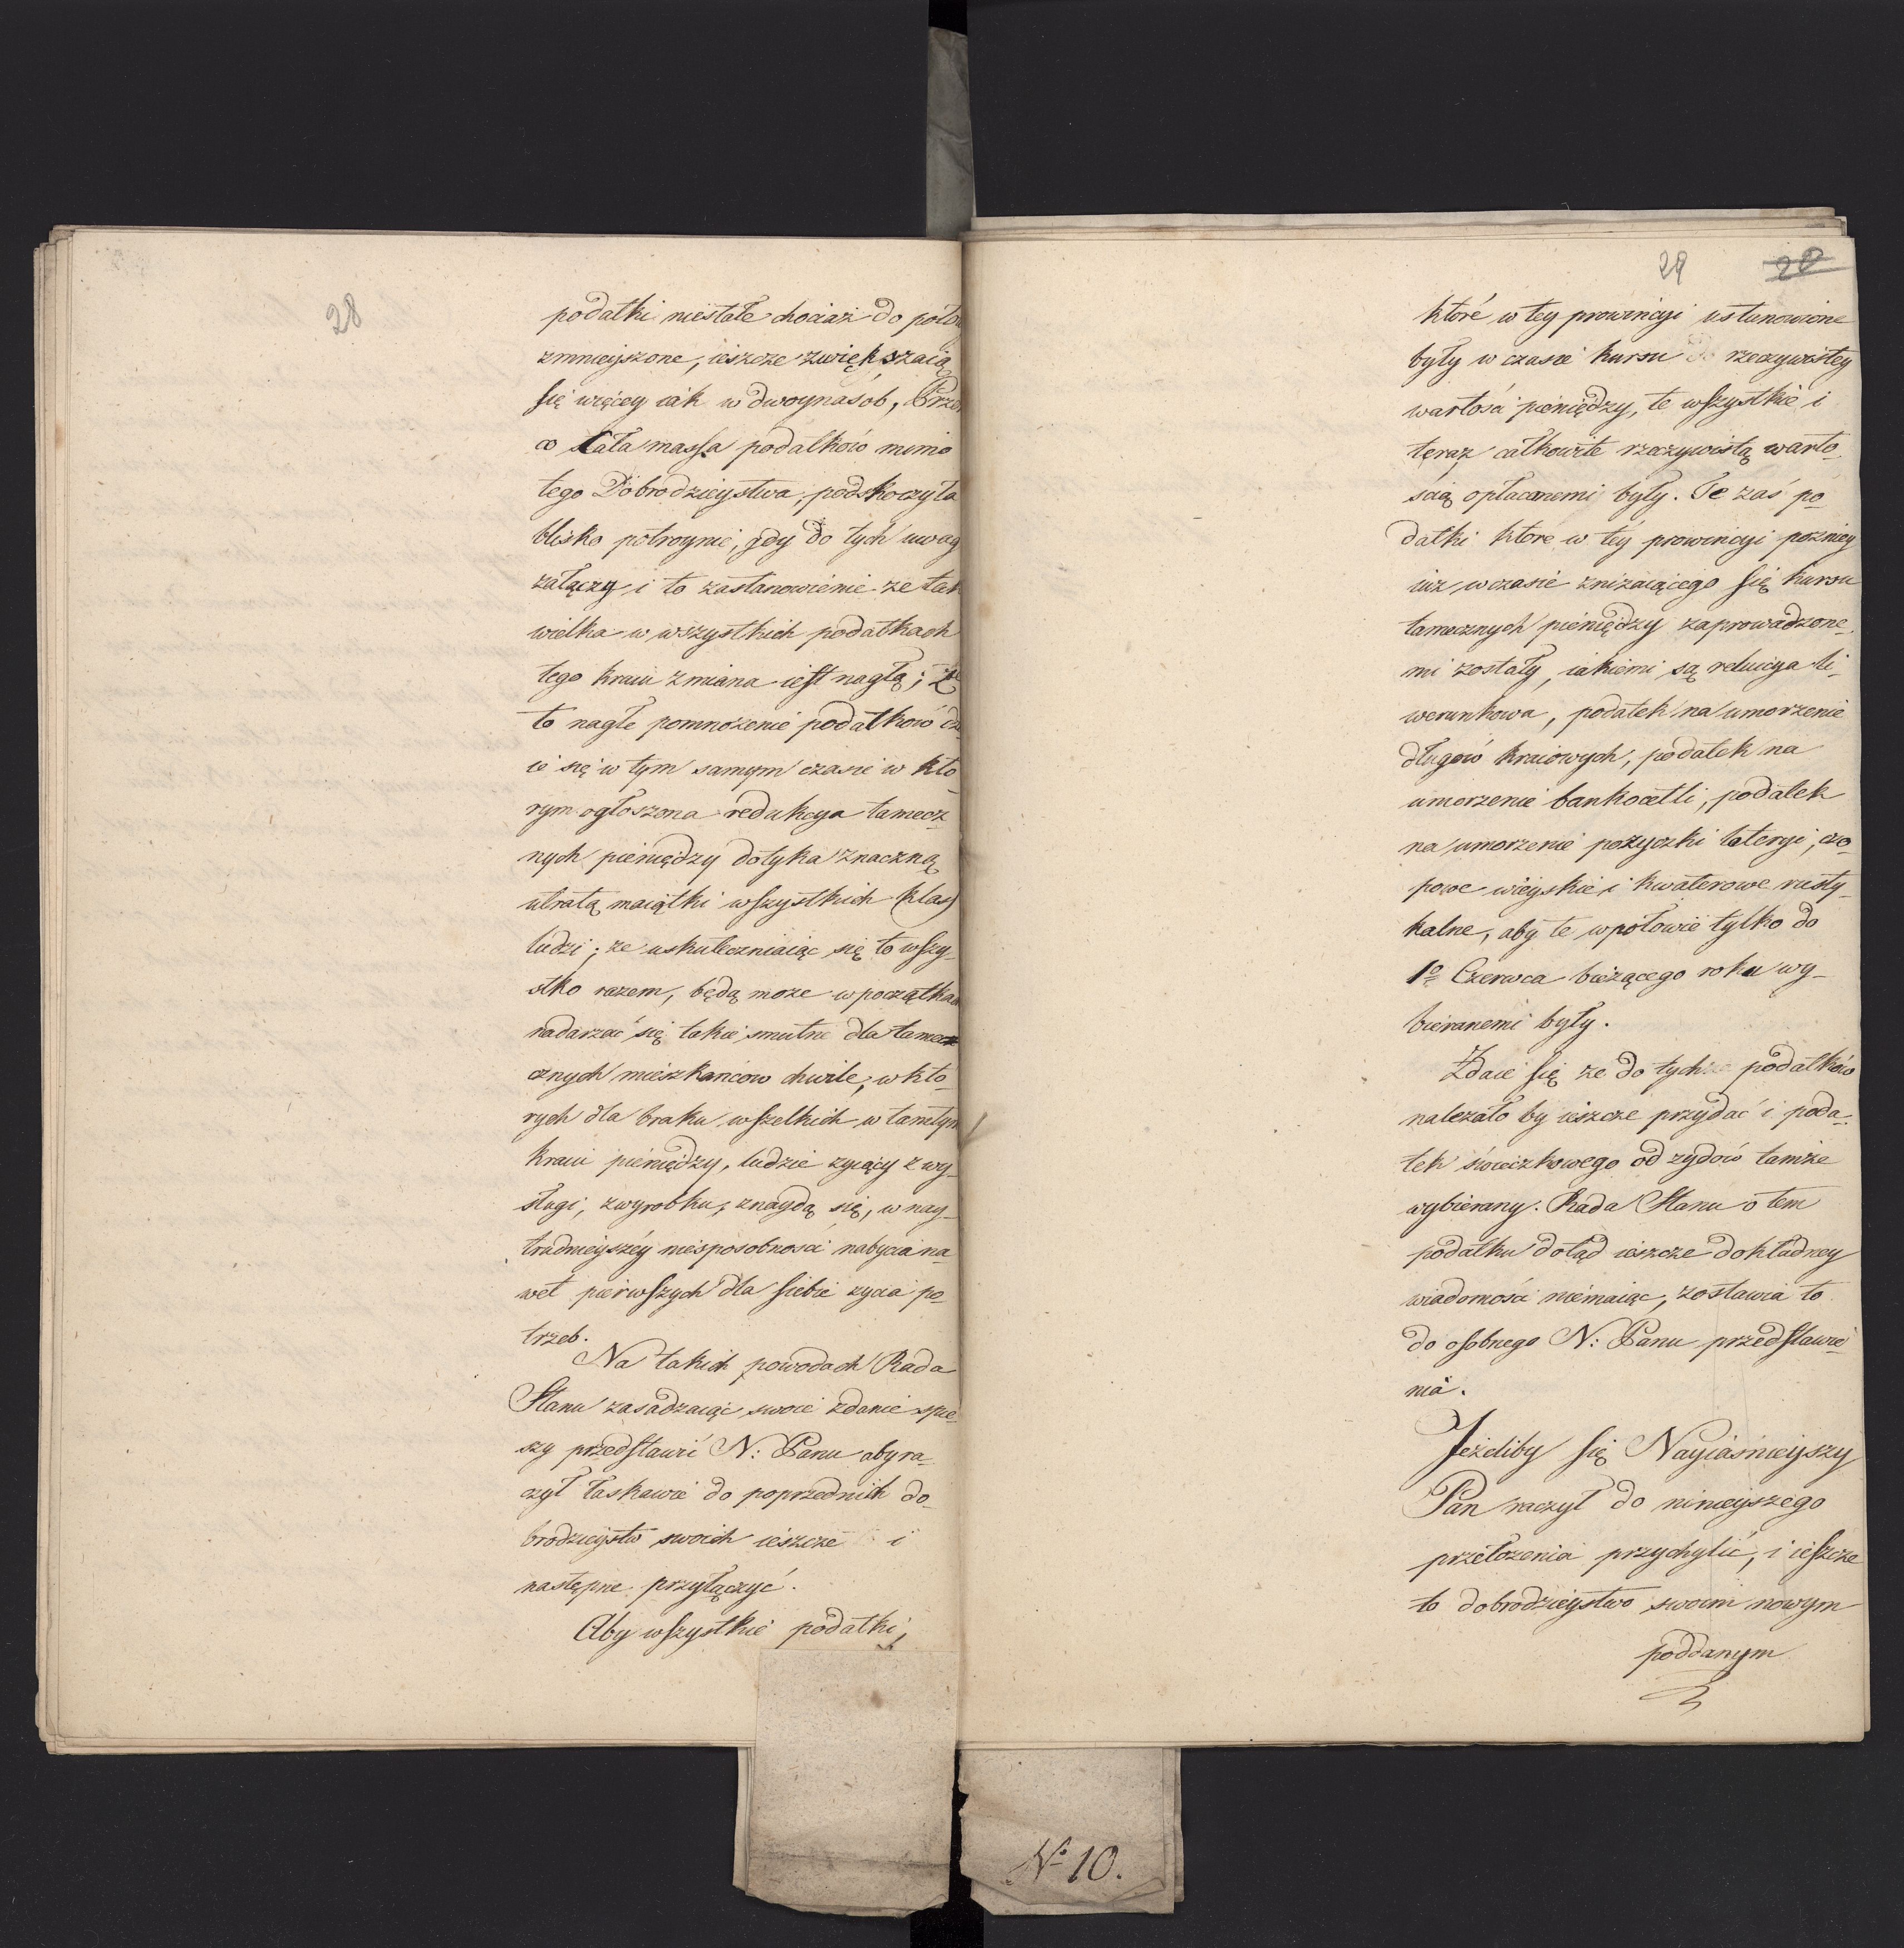 28
podatki niestałe chociaż do poło
zmnieyszone, ieszcze zwiększaią
się więcey iak w dwoynasób, Prze
co cała massa podatków mimo
tego Dobrodzieystwa, podskoczyła
blisko potroynie, gdy do tych uwag
załączy i to zastanowienie ze tak
wielka w wszystkich podatkach
tego kraiu zmiana iest nagłą; Ze
to nagłe pomnożenie podatków dz
ie się w tym samym czasie w kto_
rym ogłoszona redukcya tamecz_
nych pieniędzy dotyka znaczną
utratą maiątki wszystkich klas
ludzi; ze uskuteczniaiąc się to wszy_
stko razem, będą moze w początkach
nadarzać się takie smutne dla tamecz
cznych mieszkanców chwile, w kto_
rych dla braku wszelkich w tamtym
kraiu pieniędzy, ludzie zyiący z wy_
sługi, z wyrobku, znaydą się, w nay_
trudnieyszéy niesposobnosci nabycia na_
wet pierwszych dla siebie zycia po_
trzeb.
Na takich powodach Rada
Stanu zasadzaiąc swoie zdanie spie_
szy przedstawić N: Panu aby ra_
czył łaskawie do poprzednich do_
brodzieystw swoich ieszcze i
następne przyłączyć.
Aby wszystkie podatki,
29 28
któré w tey prowincyi ustanowione
były w czasie kursu rzeczywistey
wartości pieniędzy, te wszystkie i
teraz całkowite rzeczywistą warto_
ścią opłacanemi były. Te zaś po_
datki które w téy prowincyi pozniey
iuz w czasie znizaiącego się kursu
tamecznych pieniędzy zaprowadzone_
mi zostały, iakiemi są reluicya li_
werunkowa, podatek na umorzenie
długów kraiowych, podatek na
umorzenie bankocetli, podatek
na umorzenie pożyczki loteryi, czo_
powe wieyskie i kwaterowe rusty_
kalne, aby te w połowie tylko do
1o Czerwca bieżącego roku wy_
bieranemi były.
Zdaie się ze do tych podatków
nalezało by ieszcze przydać i poda_
tek świeczkowego od zydów tamże
wybierany. Rada Stanu o tem
podatku dotąd ieszcze dokładney
wiadomości niemaiąc, zostawia to
do osobnego N: Panu przedstawie_
nia.
Jeżeliby się Nayiaśnieyszy
Pan raczył do ninieyszego
przełożenia przychylić, i ieszcze
to dobrodzieystwo swoim nowym
poddanym
No 10.